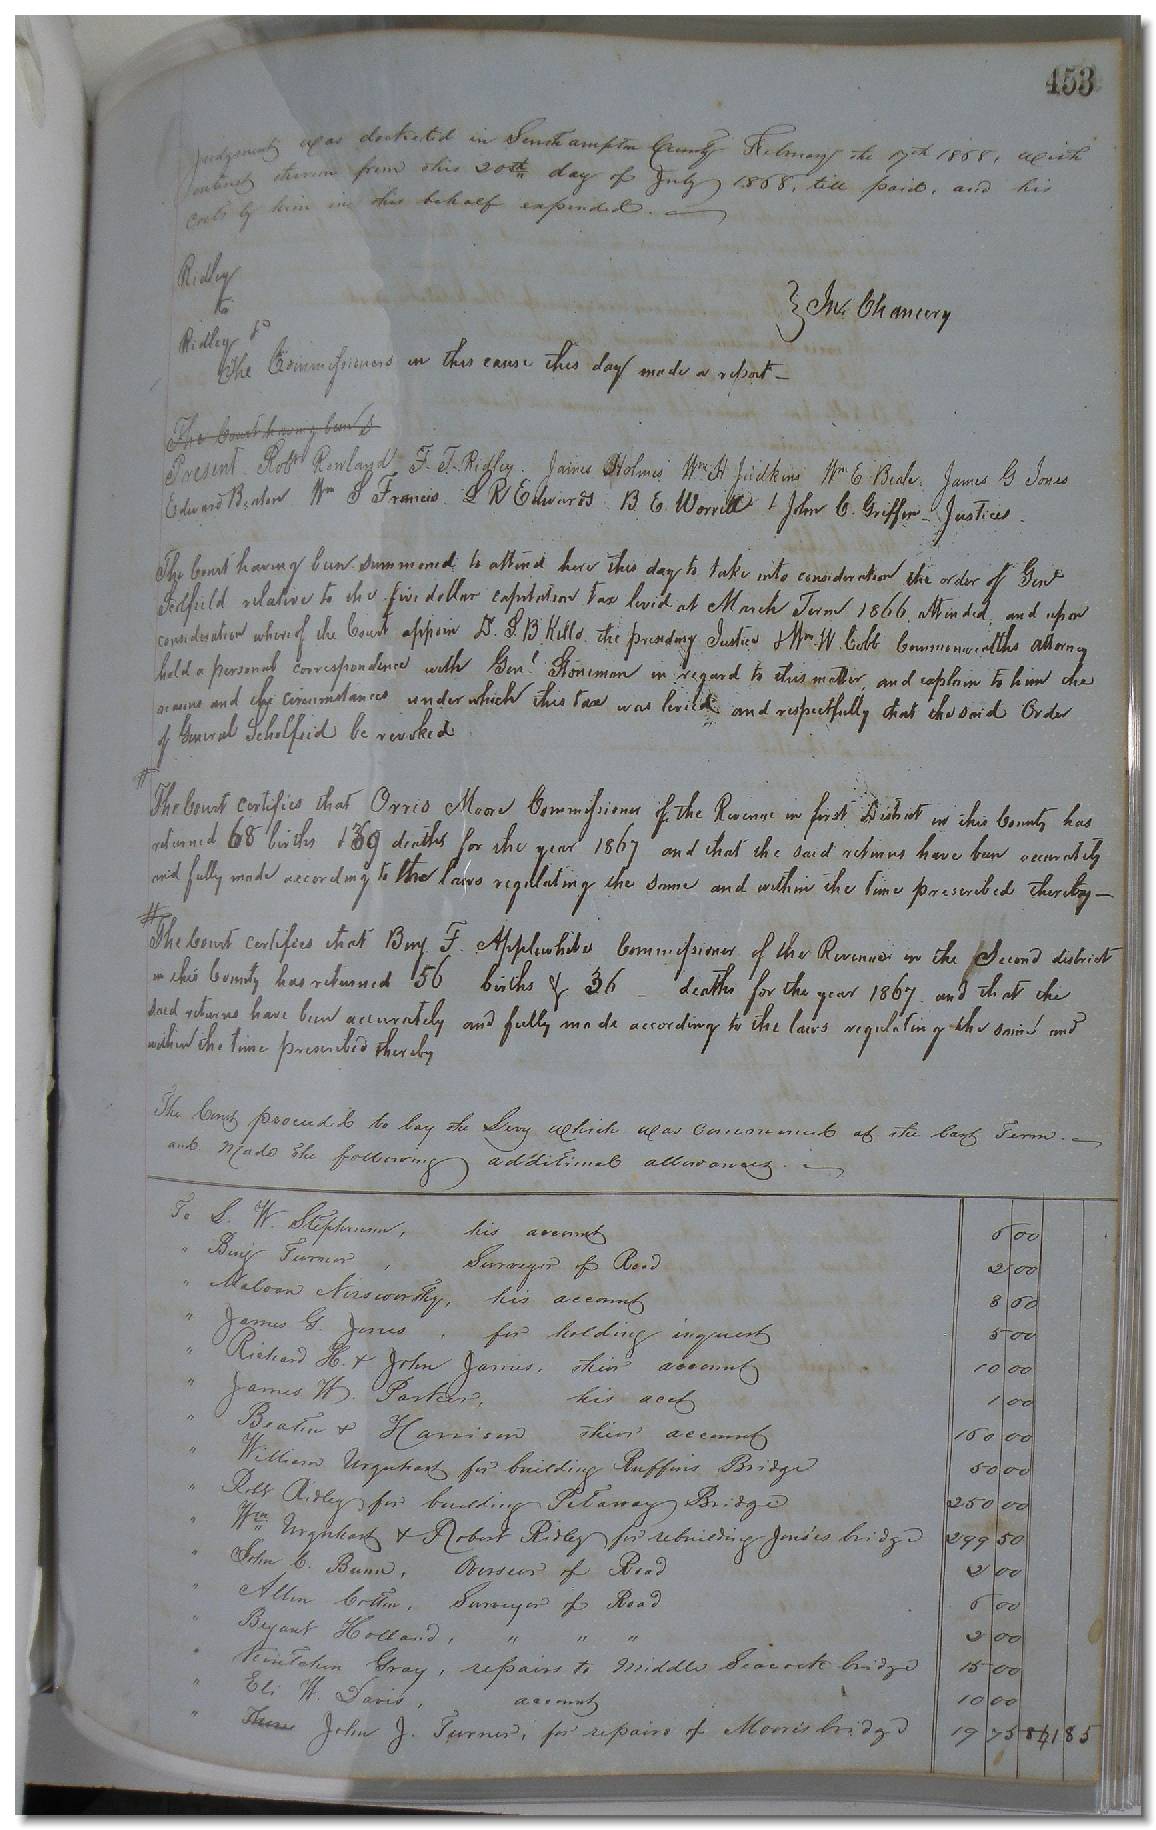 453
Judgment was docketed in Southampton County February the 17th 1868, with
interest thereon from this 20th day of July 1868, till paid, and his
costs by him in this behalf expended.
Ridley
to
Ridley &
} In Chancery
The Commissioners in this cause this day made a report
The Court having been
Present Robt Rowland F. T. Ridley. James Holmes Wm H Judkins Wm E Beale, James G Jones
Edward Beaton Wm S Francis L R Edwards B. E. Worrell & John C. Griffin Justices
The Court having been summoned to attend here this day to take into consideration the order of Genl
relative to the five dollar capitation tax levied at March Term 1866 attended, and upon
consideration whereof the Court appoin the presiding Justice & Wm W. Cobb Commonwealths attorney
hold a personal correspondence with Genl Stoneman in regard to this matter, and explain to him the
reasons and the circumstances under which this tax was levied and respectfully that the said Order
of General Scholfeid be revoked
#
The Court certifies that Orris Moore Commissioner of the Revenue in first District in this County has
returned 68 births & 39 deaths for the year 1867 and that the said returns have been accurately
and fully made according to the laws regulating the same and within the time prescribed thereby
#
The Court certifies that Benj. F. Applewhite Commissioner of the Revenue in the Second district
in this County has returned 56 births & 36 deaths for the year 1867 and that the
said returns have been accurately and fully made according to the laws regulating the same and
within the time prescribed thereby
The Court proceeded to lay the Levy which was commenced at the last Term.
and made the following additional allowances.
To S. W. Stephenson, his account 5 00
" Benj Turner, Surveyor of Road 2 00
" Norsworthy, his account 8 60
" James G. Jones, for holding inquest 5 00
" Richard H. & John James, their account 10 00
" James W. Parker, his acct 1 00
" Beaton & Harrison their account 150 00
" William Urquhart for building Ruffins Bridge 50 00
" Robt Ridley for building Bridge 250 00
" Wm Urquhart & Robert Ridley for rebuilding Jones bridge 299 50
" John C. Bunn, Overseer of Road 2 00
" Allen Surveyor of Road 5 00
" Bryant Holland, " " " 2 00
" Gray, repairs to Middle Seacock bridge 15 00
" Eli W. Davis, account 10 00
" John J. Turner, for repairs of Morris bridge 19 75 841 85